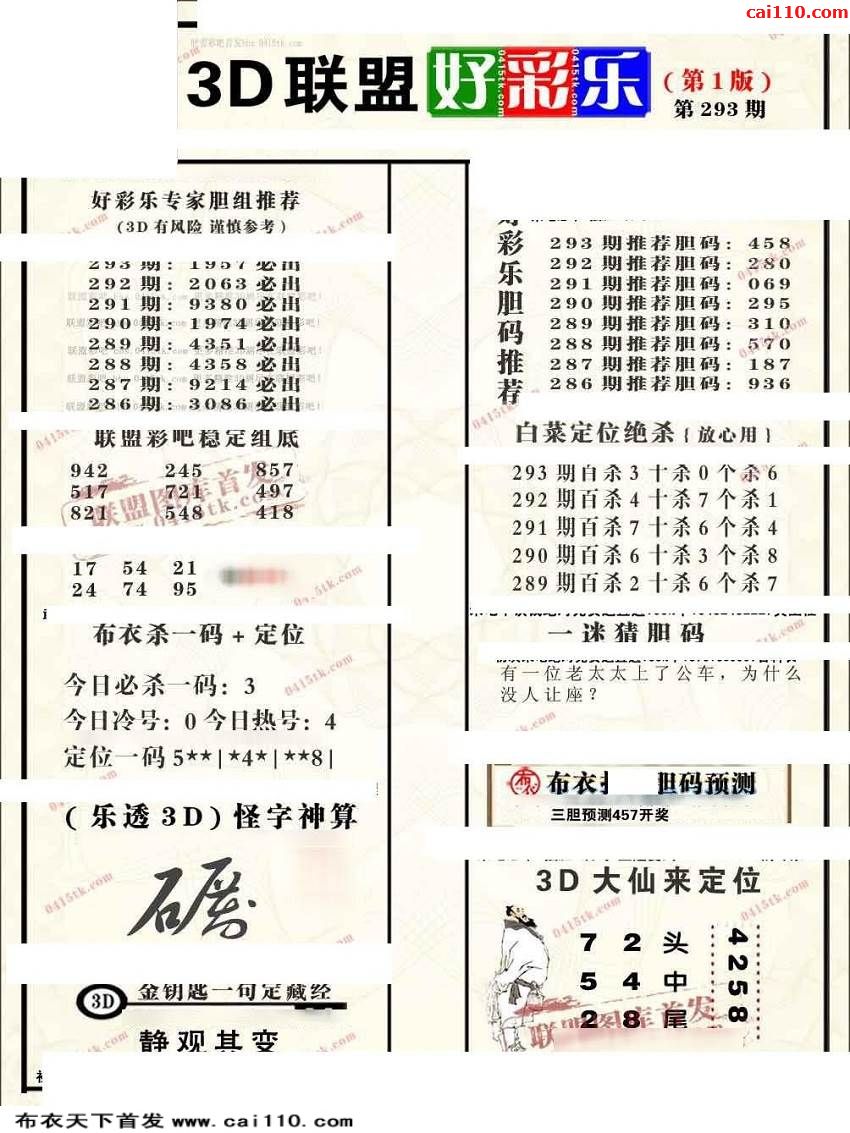 cai110.com
3D联盟好彩乐
(第1版)
第293期
好彩乐专家胆组推荐
(3D有风险 谨慎参考)
293期：1957必出
292期：2063必出
291期：9380必出
290期：1974必出
289期：4351必出
288期：4358必出
287期：9214必出
286期：3086必出
联盟彩吧稳定组底
942 245 857
517 721 497
821 548 418
17 54 21
24 74 95
布衣杀一码+定位
今日必杀一码：3
今日冷号：0 今日热号：4
定位一码5**|*4*|**8|
(乐透3D)怪字神算
3D
金钥匙一句定藏经
静观其变
好彩乐胆码推荐
293期推荐胆码：458
292期推荐胆码：280
291期推荐胆码：069
290期推荐胆码：295
289期推荐胆码：310
288期推荐胆码：570
287期推荐胆码：187
286期推荐胆码：936
白菜定位绝杀{放心用}
293期百杀3十杀0个杀6
292期百杀4十杀7个杀1
291期百杀7十杀6个杀4
290期百杀6十杀3个杀8
289期百杀2十杀6个杀7
一迷猜胆码
有一位老太太上了公车，为什么
没人让座？
布衣 胆码预测
三胆预测457开奖
3D大仙来定位
7 2 头
5 4 中
2 8 尾
4258
联盟图库首发
0415tk.com
布衣天下首发 www.cai110.com